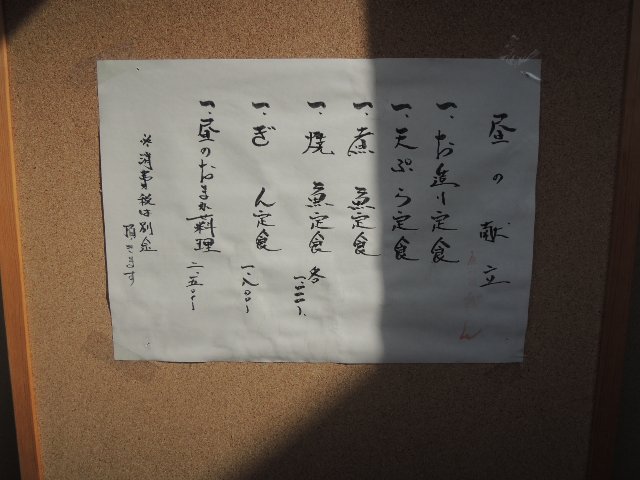 昼の献立
一、お造り定食
一、天ぷら定食
一、煮魚定食
一、焼魚定食 各
一、ぎん定食 一、八〇〇
一、昼のおまかせ料理 二、五〇〇
※消費税は別途
頂きます